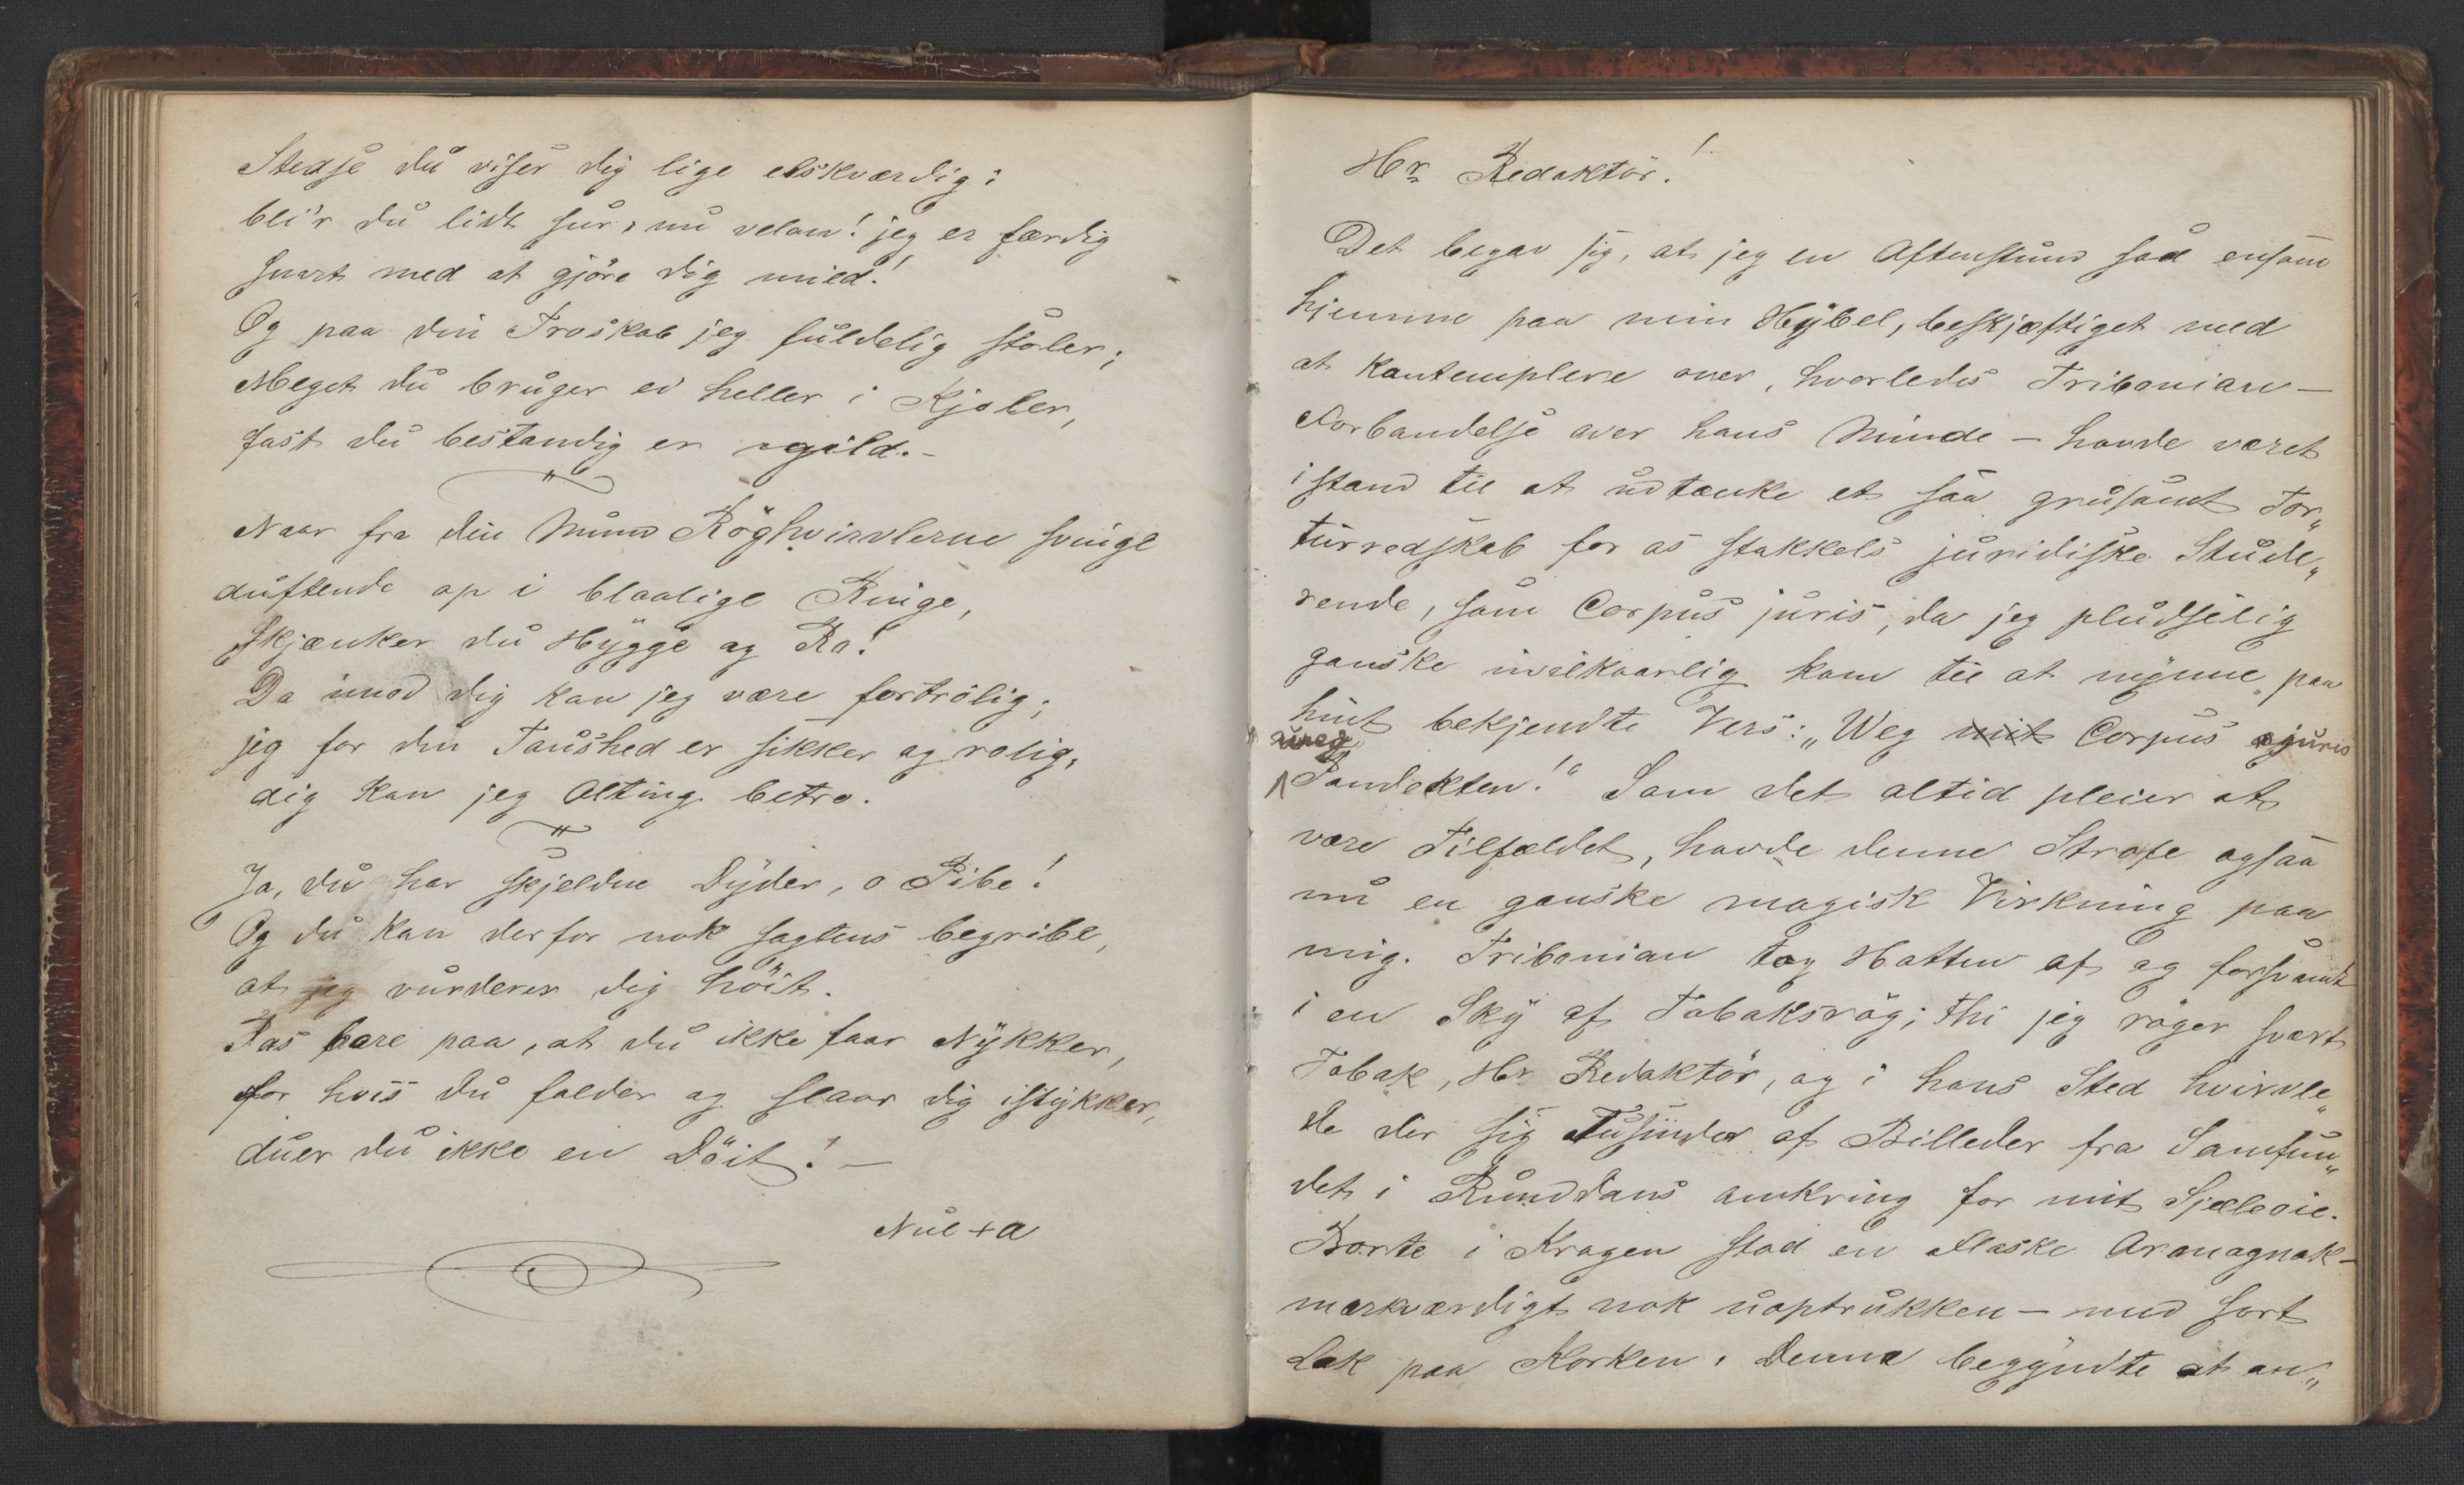 Stedse du viser dig lige elskværdig:
bli'r du lidt sur, nu velan! jeg er færdig
snart med at gjöre dig mild!
Og paa din Troskab jeg fuldelig stoler;
Meget du bruger ei heller i Kjoler,
fast du bestandig er gild.-
Naar fra din Mund Röghvirvlerne svinge
duftende op i blaalige Ringe,
skjænker du Hygge og Ro!
Da imod dig kan jeg være fortrolig;
jeg for din Taushed er sikker og rolig,
dig kan jeg Alting betro.
Ja, du har skjeldne Dyder, o Pibe!
Og du kan derfor nok sagtens begribe,
at jeg vurderer dig höit.
Pas bare paa, at du ikke faar Nykker,
for hvis du falder og slaar dig istykker,
duer du ikke en Döit! —
Nul + a
Hr Redaktör!
Det begav sig, at jeg en Aftenstund sad ensom
hjemme paa min Hybel, beskjæftiget med
at kontemplere over, hvorledes Tribonian —
Forbandelse over hans Minde — havde været
istand til at udtænke et saa grusomt Tor„
turredskab for os stakkels juridiske Stude„
rende, som Corpus juris, da jeg pludselig
ganske uvilkaarlig kom til at nynne paa
hint bekjendte Vers: „Weg mit Corpus juris
weg
Pandekten!“ Som det altid pleier at
være Tilfældet, havde denne Strofe ogsaa
nu en ganske magisk Virkning paa
mig. Tribonian tog Hatten af og forsvandt
i en Sky af Tobaksrög; thi jeg röger svært
Tobak, Hr. Redaktör, og i hans Sted hvirvle„
de der sig Tusinder af Billeder fra Samfun„
det i Runddans omkring for mit Sjæleöie.
Borte i Krogen stod en Flaske Aromagnak —
mærkværdigt nok uoptrukken — med sort
Lak paa Korken. Denne begyndte at an„